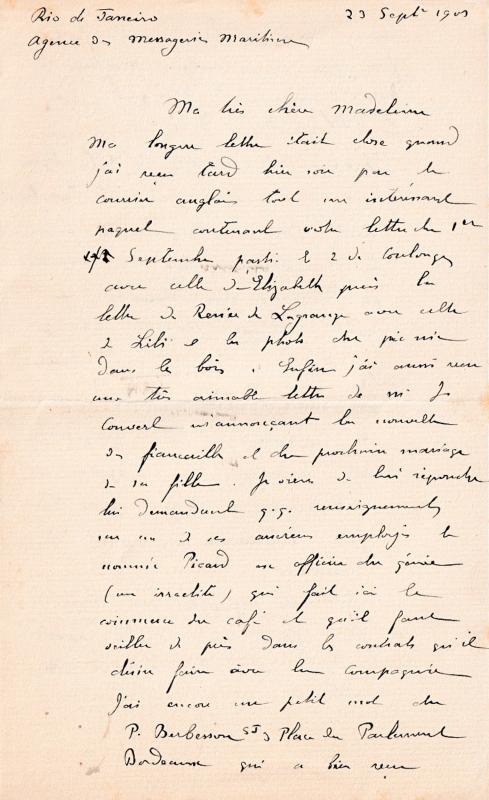 Rio de Janeiro 23 Sept 1901
Agence des Messageries Maritimes
Ma très chère Madeleine
Ma longue lettre était close quand
j'ai reçu tard hier soir par le
courrier anglais tout un intéressant
paquet contenant votre lettre du 1er
Septembre partie le 2 de Coulonges
avec celle d'Elizabeth puis la
lettre de Renée de Lagrange avec celle
de Lili et les photos du pic nic
dans les bois. Enfin j'ai aussi reçu
une très aimable lettre de Mr J.
Convert m'annonçant la nouvelle
des fiançailles et du prochain mariage
de sa fille. Je viens de lui répondre
lui demandant q.q. renseignements
sur un de ses anciens employés le
nommé Picard ex officier du génie
(un israelite) qui fait ici le
commerce du café et qu'il faut
veiller de près dans les contrats qu'il
désire faire avec la Compagnie
J'ai encore un petit mot du
P. Berbesson SJ 3 Place du Parlement
Bordeaux qui a bien reçu